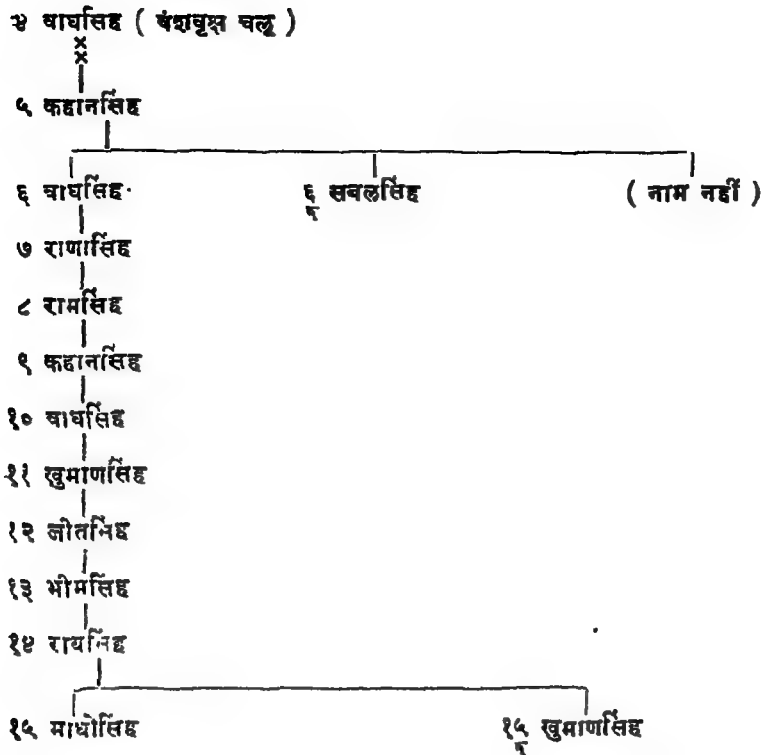 ४ वाघसिंह ( वंशवृक्ष चलू )
५ कहानसिंह
६ वाघसिंह ६/२ सबलसिंह ( नाम नहीं )
७ राणासिंह
८ रामसिंह
९ कहानसिंह
१० वाघसिंह
११ खुमाणसिंह
१२ जीतसिंह
१३ भीमसिंह
१४ रायसिंह
१५ माधोसिंह १५/२ खुमाणसिंह